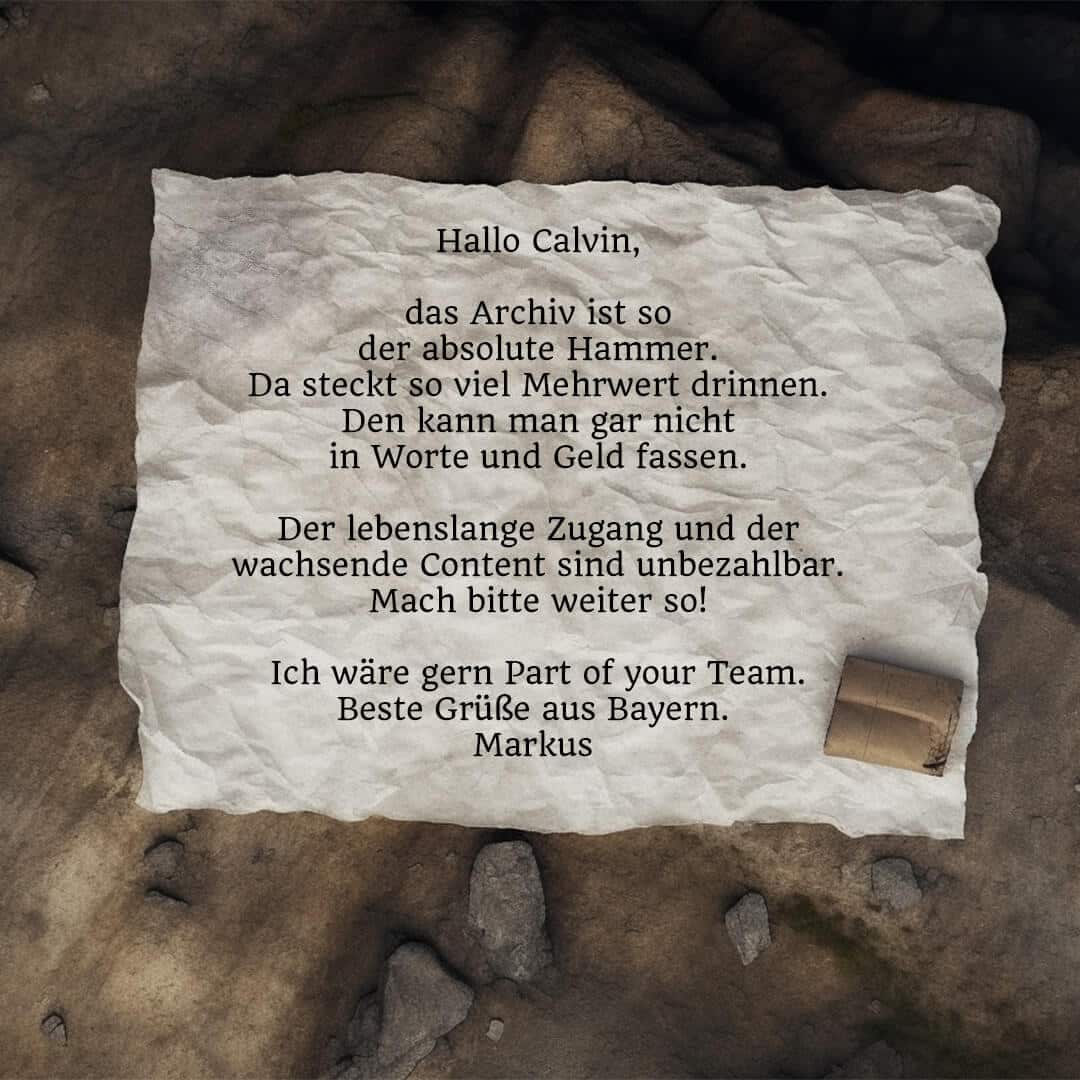 Hallo Calvin,
das Archiv ist so
der absolute Hammer.
Da steckt so viel Mehrwert drinnen.
Den kann man gar nicht
in Worte und Geld fassen.
Der lebenslange Zugang und der
wachsende Content sind unbezahlbar.
Mach bitte weiter so!
Ich wäre gern Part of your Team.
Beste Grüße aus Bayern.
Markus